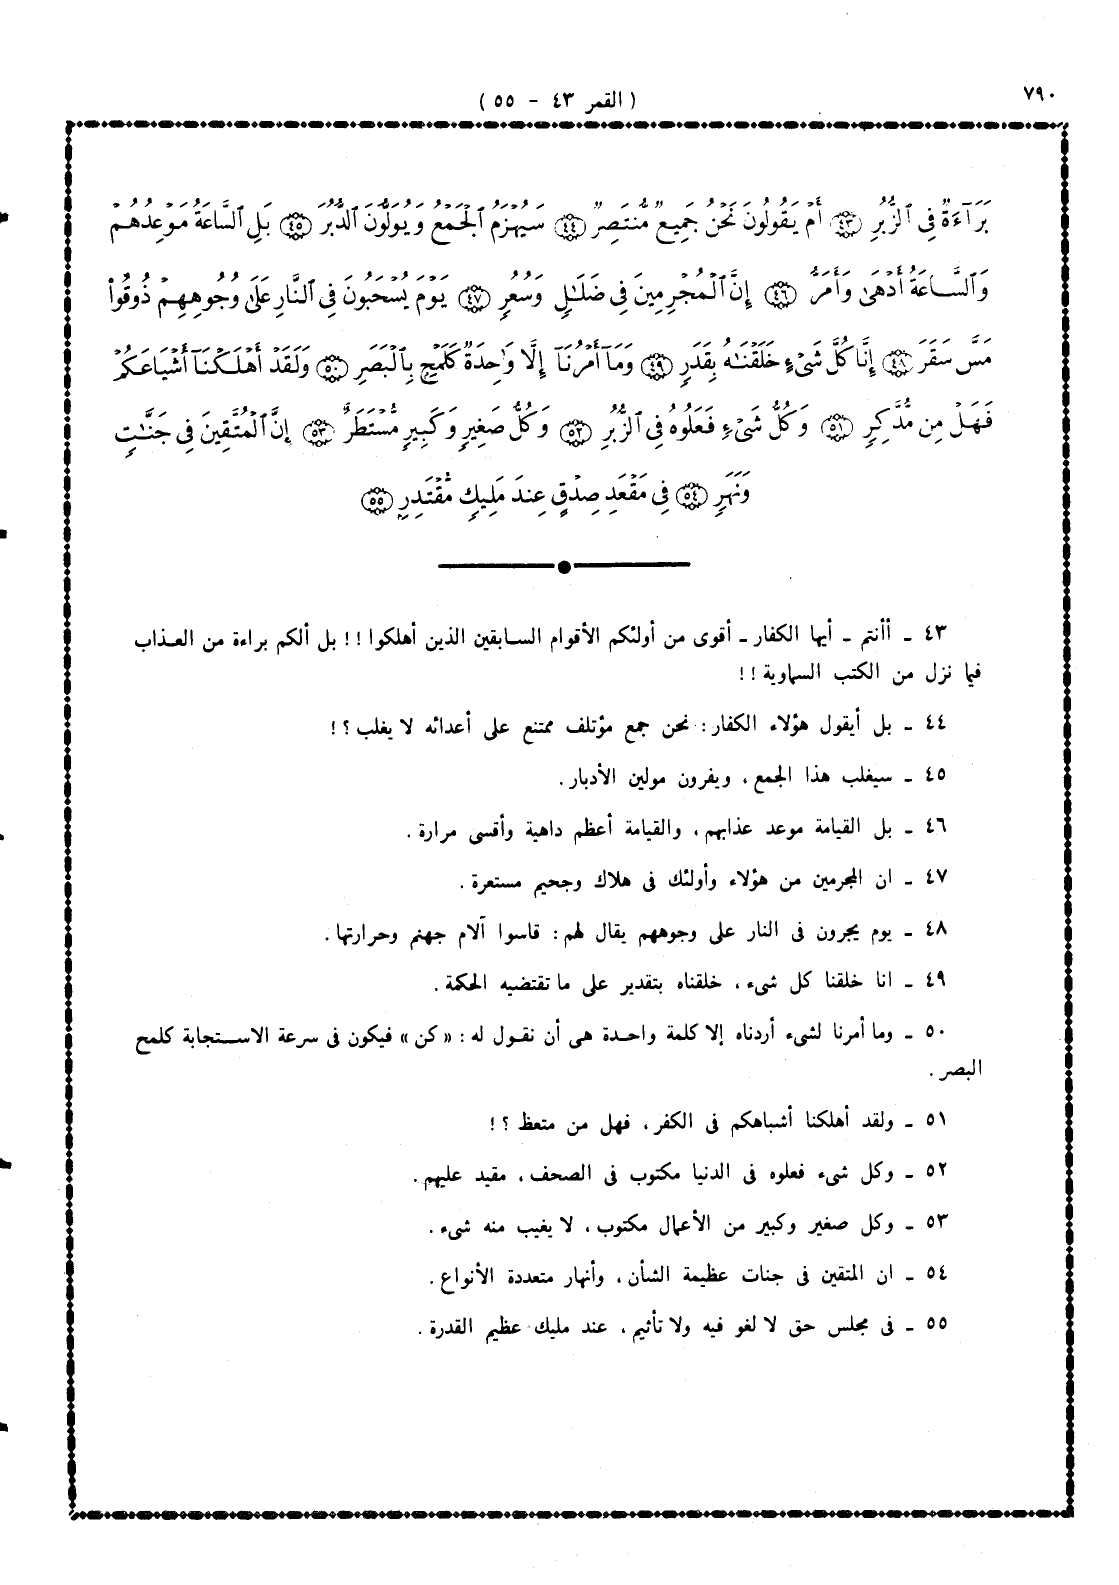 ٧٩٠
( القمر ٤٣ - ٥٥ )
بَرَآءَةٌ فِى ٱلزُّبُرِ ۝٤٣ أَمْ يَقُولُونَ نَحْنُ جَمِيعٌ مُّنتَصِرٌ ۝٤٤ سَيُهْزَمُ ٱلْجَمْعُ وَيُوَلُّونَ ٱلدُّبُرَ ۝٤٥ بَلِ ٱلسَّاعَةُ مَوْعِدُهُمْ
وَٱلسَّاعَةُ أَدْهَىٰ وَأَمَرُّ ۝٤٦ إِنَّ ٱلْمُجْرِمِينَ فِى ضَلَٰلٍ وَسُعُرٍ ۝٤٧ يَوْمَ يُسْحَبُونَ فِى ٱلنَّارِ عَلَىٰ وُجُوهِهِمْ ذُوقُوا۟
مَسَّ سَقَرَ ۝٤٨ إِنَّا كُلَّ شَىْءٍ خَلَقْنَٰهُ بِقَدَرٍ ۝٤٩ وَمَآ أَمْرُنَآ إِلَّا وَٰحِدَةٌ كَلَمْحٍۭ بِٱلْبَصَرِ ۝٥٠ وَلَقَدْ أَهْلَكْنَآ أَشْيَاعَكُمْ
فَهَلْ مِن مُّدَّكِرٍ ۝٥١ وَكُلُّ شَىْءٍ فَعَلُوهُ فِى ٱلزُّبُرِ ۝٥٢ وَكُلُّ صَغِيرٍ وَكَبِيرٍ مُّسْتَطَرٌ ۝٥٣ إِنَّ ٱلْمُتَّقِينَ فِى جَنَّٰتٍ
وَنَهَرٍ ۝٥٤ فِى مَقْعَدِ صِدْقٍ عِندَ مَلِيكٍ مُّقْتَدِرٍۭ ۝٥٥
٤٣ - أأنتم - أيها الكفار - أقوى من أولئكم الأقوام السابقين الذين أهلكوا !! بل ألكم براءة من العذاب
فيما نزل من الكتب السماوية !!
٤٤ - بل أيقول هؤلاء الكفار: نحن جمع مؤتلف ممتنع على أعدائه لا يغلب ؟ !
٤٥ - سيغلب هذا الجمع ، ويفرون مولين الأدبار .
٤٦ - بل القيامة موعد عذابهم ، والقيامة أعظم داهية وأقسى مرارة .
٤٧ - ان المجرمين من هؤلاء وأولئك فى هلاك وجحيم مستعرة .
٤٨ - يوم يجرون فى النار على وجوههم يقال لهم : قاسوا آلام جهنم وحرارتها .
٤٩ - انا خلقنا كل شىء ، خلقناه بتقدير على ما تقتضيه الحكمة .
٥٠ - وما أمرنا لشىء أردناه إلا كلمة واحدة هى أن نقول له : «كن» فيكون فى سرعة الاستجابة كلمح
البصر .
٥١ - ولقد أهلكنا أشباهكم فى الكفر ، فهل من متعظ ؟ !
٥٢ - وكل شىء فعلوه فى الدنيا مكتوب فى الصحف ، مقيد عليهم .
٥٣ - وكل صغير وكبير من الأعمال مكتوب ، لا يغيب منه شىء .
٥٤ - ان المتقين فى جنات عظيمة الشأن ، وأنهار متعددة الأنواع .
٥٥ - فى مجلس حق لا لغو فيه ولا تأثيم ، عند مليك عظيم القدرة .